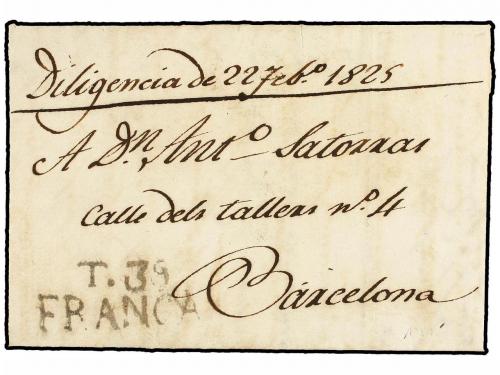 Diligencia de 22 Feb.º 1825
A Dn. Antº Satorras
Calle dels tallers nº. 4
Barcelona
T. 39
FRANCA